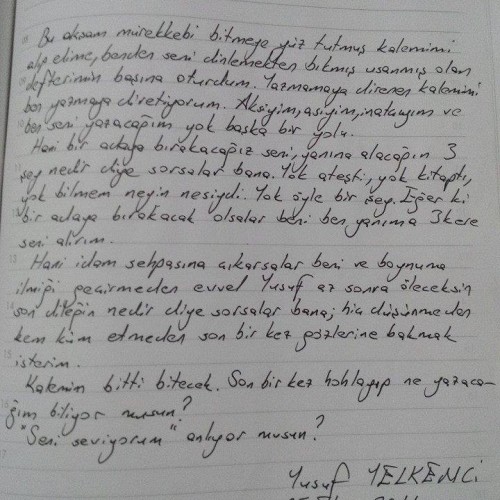 Bu akşam mürekkebi bitmeye yüz tutmuş kalemimi
alıp elime, benden seni dinlemekten bıkmış usanmış olan
defterimin başına oturdum. Yazmamaya direnen kalemimi
ben yazmaya diretiyorum. Aksiyim, asiyim, inatçıyım ve
ben seni yazacağım yok başka bir yolu.
Hani bir adaya bırakacağız seni, yanına alacağın 3
şey nedir diye sorsalar bana. Yok ateşti, yok kitaptı,
yok bilmem neyin nesiydi. Yok öyle bir şey. Eğer ki
bir adaya bırakacak olsalar beni ben yanıma 3 kere
seni alırım.
Hani idam sehpasına çıkarsalar beni ve boynuma
ilmiği geçirmeden evvel Yusuf az sonra öleceksin
son dileğin nedir diye sorsalar bana; hiç düşünmeden
kem küm etmeden son bir kez gözlerine bakmak
isterim.
Kalemim bitti bitecek. Son bir kez hohlayıp ne yazaca-
ğım biliyor musun?
"Seni seviyorum" anlıyor musun?
Yusuf YELKENCİ